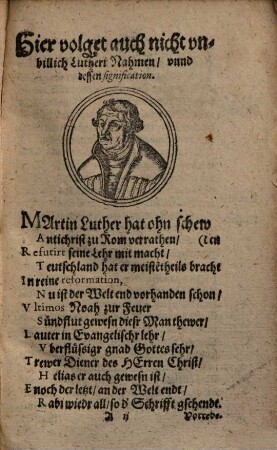 Hier volget auch nicht vn-
billich Lutheri Nahmen/ vnnd
dessen signification.
MArtin Luther hat ohn schew
Antichrist zu Rom verrathen/ (ten
Refutirt seine Lehr mit macht/
Teutschland hat er meistētheils bracht
In reine reformation,
Nu ist der Welt end vorhanden schon/
Vltimos Noah zur Feuer
Sündflut gewesn diesr Man thewer/
Lauter in Evangelischr lehr/
Vberflüssigr gnad Gottes sehr/
Trewer Diener des HErren Christ/
Helias er auch gewesn ist/
Enoch der letzt/ an der Welt endt/
Rabi wiedr all/ so d Schrifft gschendt.
A ij
Vorrede.